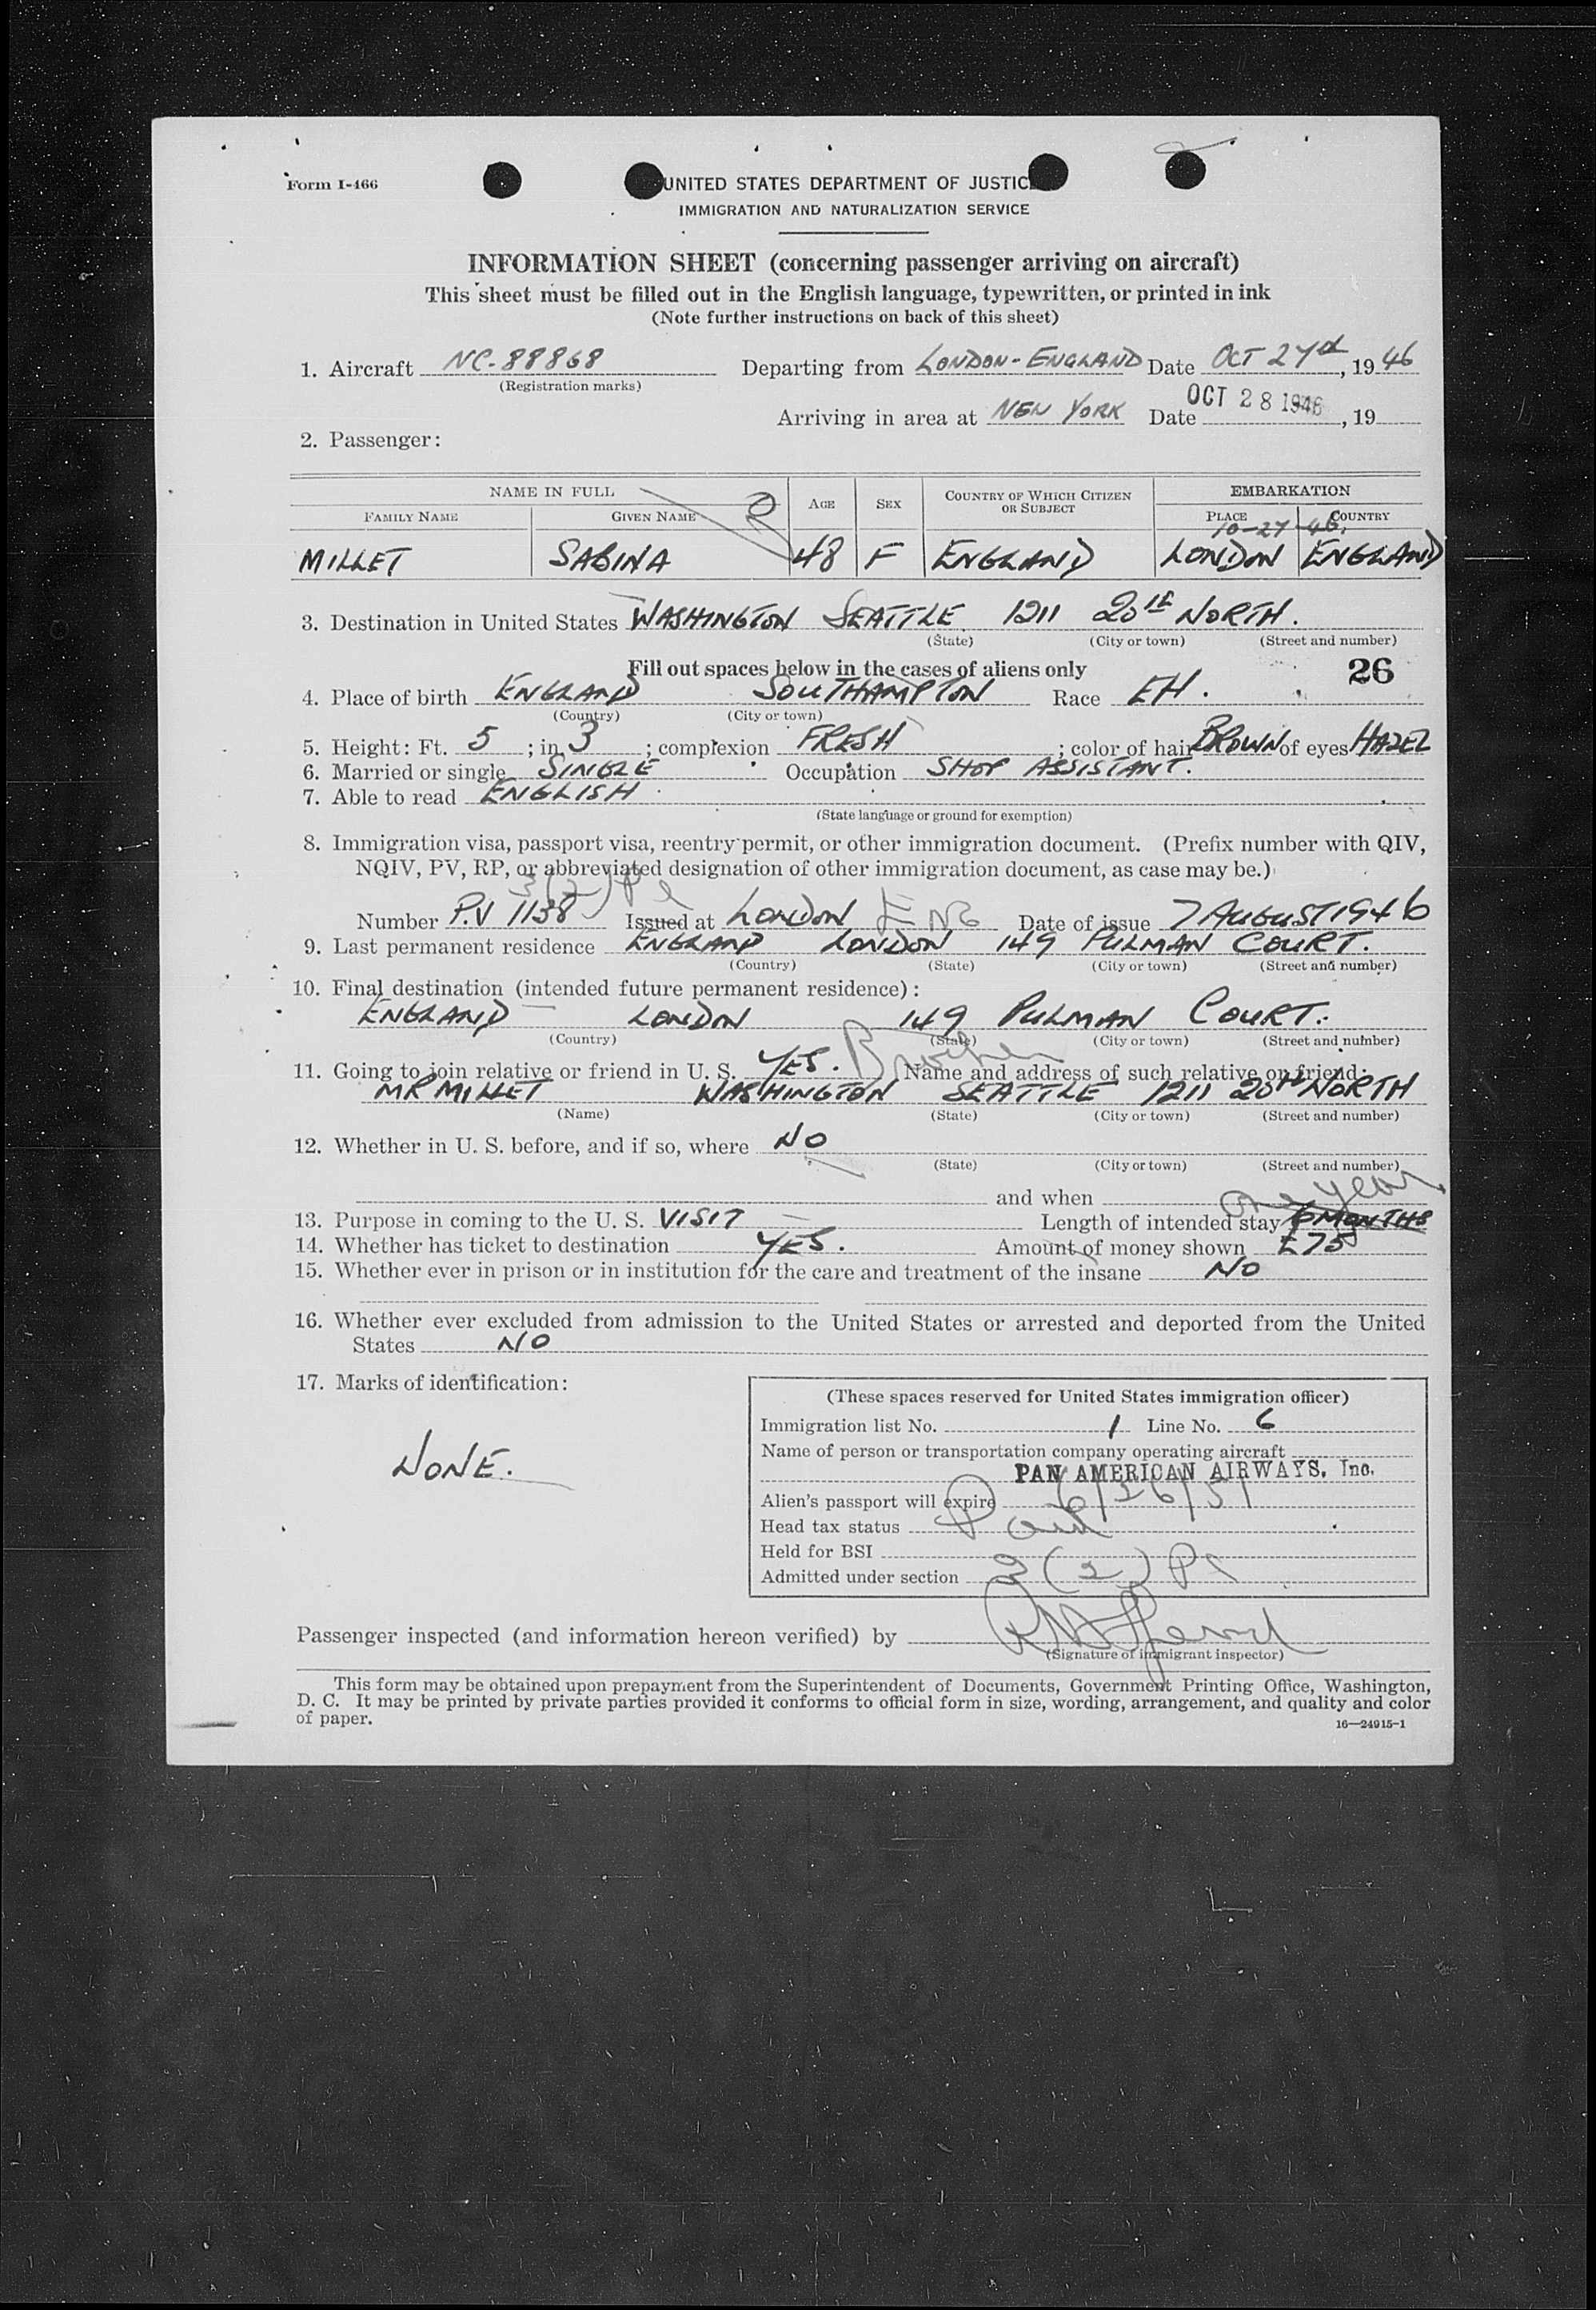 Form I-466
UNITED STATES DEPARTMENT OF JUSTICE
IMMIGRATION AND NATURALIZATION SERVICE
INFORMATION SHEET (concerning passenger arriving on aircraft)
This sheet must be filled out in the English language, typewritten, or printed in ink
(Note further instructions on back of this sheet)
1. Aircraft NC-88868 Departing from LONDON-ENGLAND Date OCT 27th, 1946
(Registration marks)
Arriving in area at NEW YORK Date OCT 28 1946, 19
2. Passenger:
NAME IN FULL AGE SEX COUNTRY OF WHICH CITIZEN OR SUBJECT EMBARKATION
FAMILY NAME GIVEN NAME PLACE COUNTRY
10-27-46.
MILLET SABINA 48 F ENGLAND LONDON ENGLAND
3. Destination in United States WASHINGTON SEATTLE 1211 20th NORTH.
(State) (City or town) (Street and number)
Fill out spaces below in the cases of aliens only 26
4. Place of birth ENGLAND SOUTHAMPTON Race EH.
(Country) (City or town)
5. Height: Ft. 5 ; in 3 ; complexion FRESH ; color of hair BROWN of eyes HAZEL
6. Married or single SINGLE Occupation SHOP ASSISTANT.
7. Able to read ENGLISH
(State language or ground for exemption)
8. Immigration visa, passport visa, reentry permit, or other immigration document. (Prefix number with QIV,
NQIV, PV, RP, or abbreviated designation of other immigration document, as case may be.)
3(2)
Number P.V 1138 Issued at LONDON ENG Date of issue 7 AUGUST 1946
9. Last permanent residence ENGLAND LONDON 149 PULMAN COURT.
(Country) (State) (City or town) (Street and number)
10. Final destination (intended future permanent residence):
ENGLAND LONDON 149 PULMAN COURT.
(Country) (State) (City or town) (Street and number)
Brother
11. Going to join relative or friend in U. S. YES. Name and address of such relative or friend:
MR MILLET WASHINGTON SEATTLE 1211 20th NORTH
(Name) (State) (City or town) (Street and number)
12. Whether in U. S. before, and if so, where NO
(State) (City or town) (Street and number)
and when
one year
13. Purpose in coming to the U. S. VISIT Length of intended stay 6 MONTHS
14. Whether has ticket to destination YES. Amount of money shown £75
15. Whether ever in prison or in institution for the care and treatment of the insane NO
16. Whether ever excluded from admission to the United States or arrested and deported from the United
States NO
17. Marks of identification:
NONE.
(These spaces reserved for United States immigration officer)
Immigration list No. 1 Line No. 6
Name of person or transportation company operating aircraft
PAN AMERICAN AIRWAYS, Inc.
Alien's passport will expire 6/26/51
Head tax status Paid
Held for BSI
Admitted under section 3(2)
Passenger inspected (and information hereon verified) by
(Signature of immigrant inspector)
This form may be obtained upon prepayment from the Superintendent of Documents, Government Printing Office, Washington,
D. C. It may be printed by private parties provided it conforms to official form in size, wording, arrangement, and quality and color
of paper.
16—24915-1